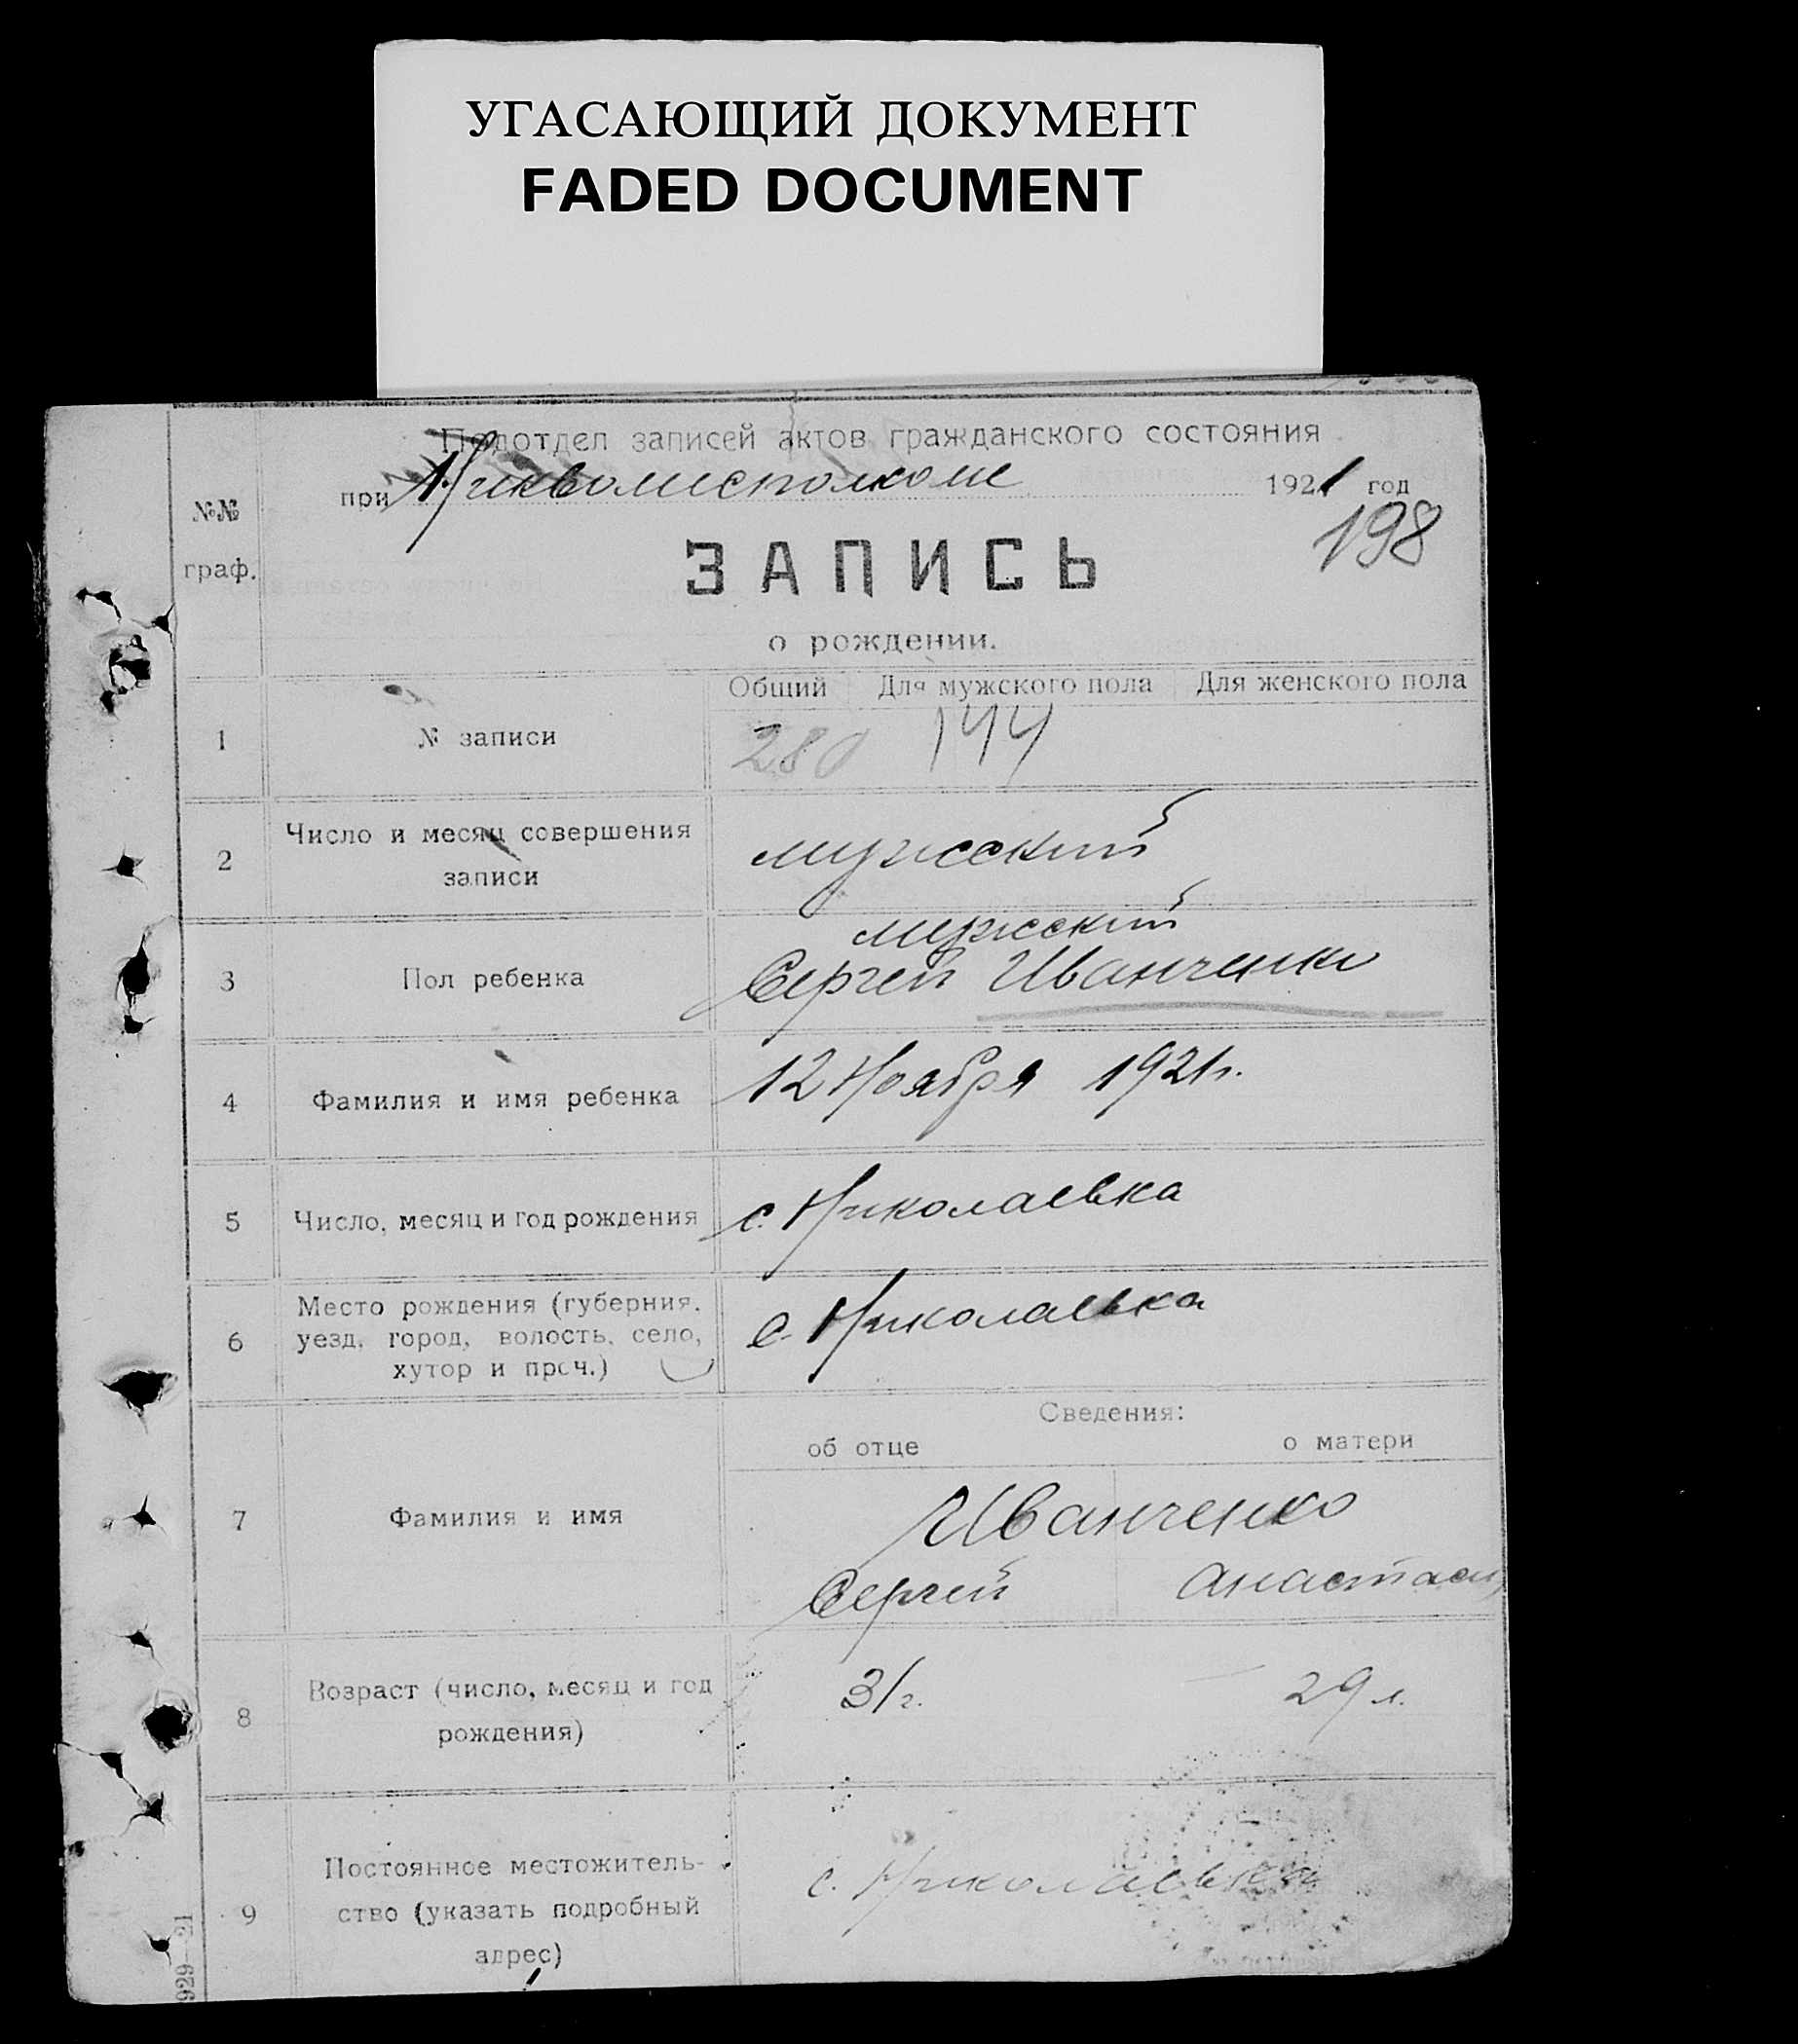 УГАСАЮЩИЙ ДОКУМЕНТ
FADED DOCUMENT
Подотдел записей актов гражданского состояния
при Никволисполкоме 1921 год
198
№№ граф.
ЗАПИСЬ
о рождении.
Общий Для мужского пола Для женского пола
1 № записи 280 144
2 Число и месяц совершения
записи
мужский
мужский
3 Пол ребенка Сергей Иванченко
4 Фамилия и имя ребенка 12 Ноября 1921 г.
5 Число, месяц и год рождения с. Николаевка
6 Место рождения (губерния,
уезд, город, волость, село,
хутор и проч.)
с. Николаевка
Сведения:
об отце о матери
7 Фамилия и имя Иванченко
Сергей Анастасия
8 Возраст (число, месяц и год
рождения)
31 г. 29 л.
9 Постоянное местожитель-
ство (указать подробный
адрес)
с. Николаевка
929—21